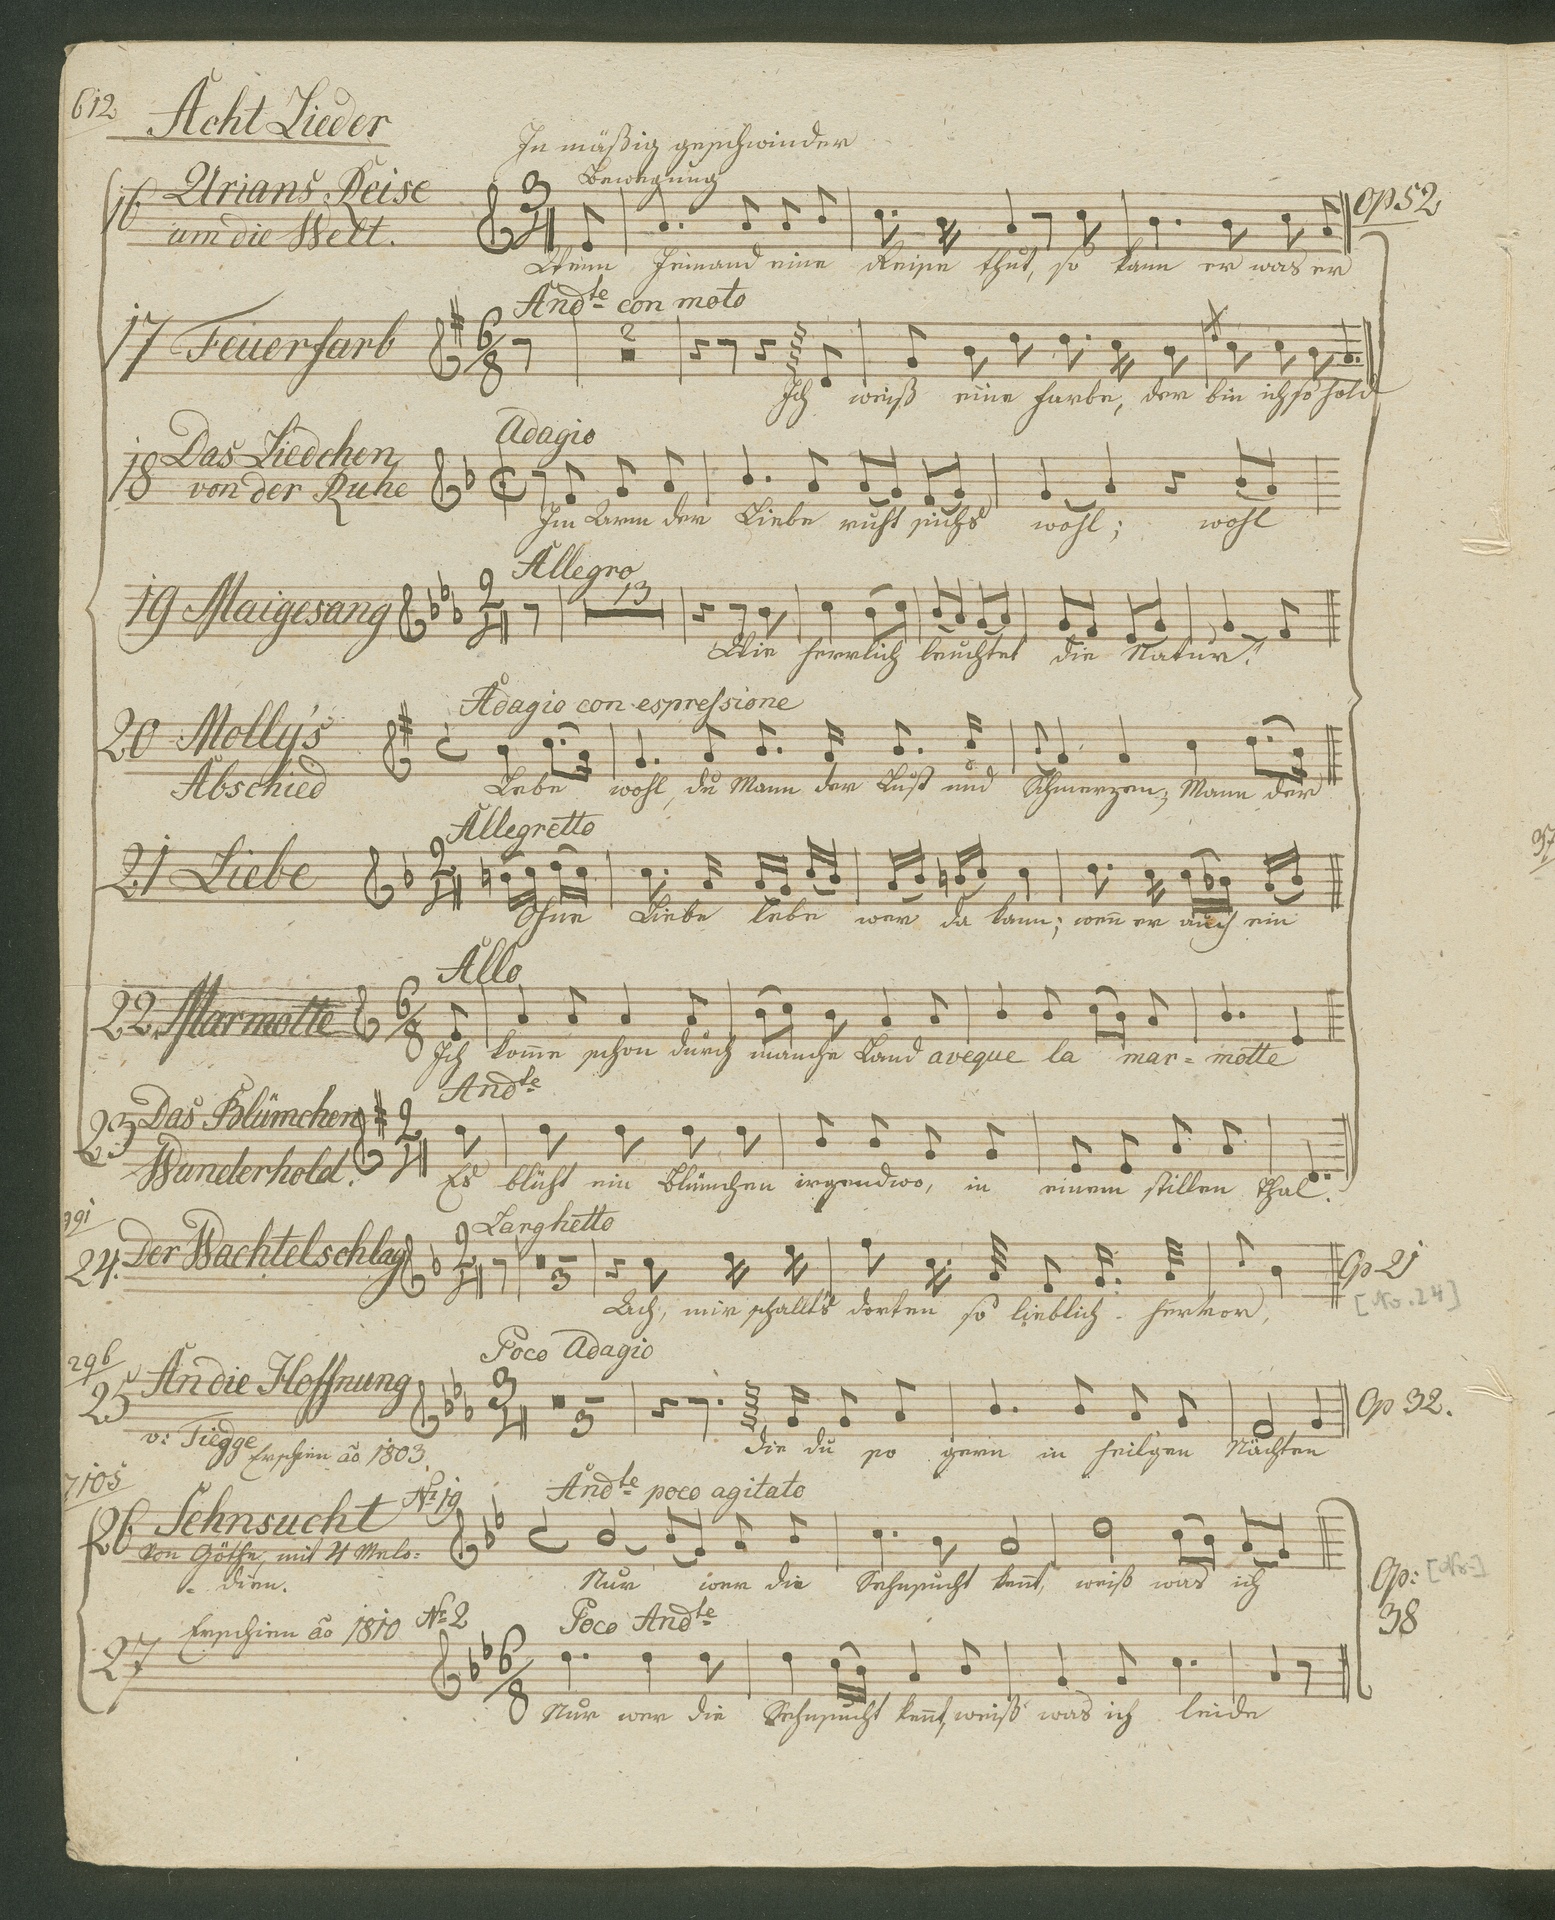 612
Acht Lieder
In mäßig geschwinder
Bewegung
16 Urians Reise
um die Welt.
op 52
Wenn Jemand eine Reise thut, so kann er was er
Andte con moto
17 Feuerfarb
2
Ich weiß eine Farbe, der bin ich so hold
Adagio
18 Das Liedchen
von der Ruhe
Im Arm der Liebe ruht sichs wohl; wohl
Allegro
13
19 Maigesang
Wie herrlich leuchtet die Natur!
Adagio con espressione
20 Molly's
Abschied
Lebe wohl, du Mann der Lust und Schmerzen; Mann der
Allegretto
21 Liebe
Ohne Liebe lebe wer da kann; wen̄ er auch ein
Allo
22 Marmotte
Ich kom̄e schon durch manche Land aveque la mar-motte
Andte
23 Das Blümchen
Wunderhold.
Es blüht ein Blümchen irgendwo, in einem stillen Thal.
Larghetto
24. Der Wachtelschlag
3
Op 21
[No. 24]
Ach, mir schallt's dorten so lieblich hervor,
296
Poco Adagio
25 An die Hoffnung
3
Op 32.
v: Tiegge Erschien ão 1803.
Die du so gern in heilgen Nächten
Andte poco agitato
26 Sehnsucht No 19
Von Göthe, mit 4 Melo=
= dien.
Nur wer die Sehnsucht ken̄t, weiß was ich
Op:
38
Erschien ão 1810 No 2
Poco Andte
27
Nur wer die Sehnsucht ken̄t, weiß was ich leide
37